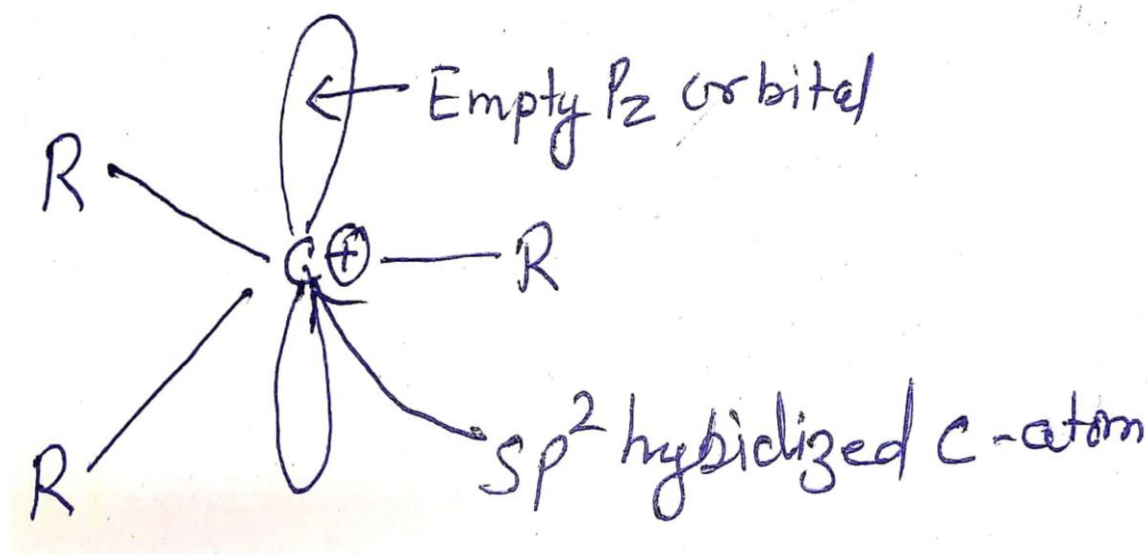 Empty Pz orbital
R
C⊕
R
R
Sp² hybidized C-atom